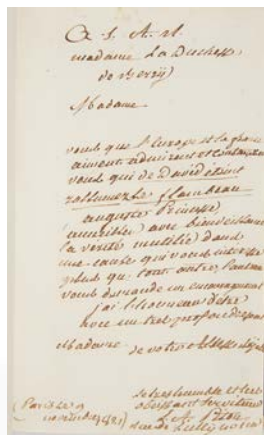 A S. A. R.
madame La Duchesse
de Berry
Madame
vous que l'Europe et la france
aiment, admirent et
vous qui de David
rallumez le flambeau
auguste Princesse,
accueillez avec bienveillance
la vérité mutilée dans
une cause qui vous intéresse
plus que tout autre, l'auteur
vous demande un encouragement
j'ai l'honneur d'être
avec un très profond respect
Madame
de votre Altesse
le très humble et très
obéissant serviteur
L. A. Pitou
rue de Lully
(Paris le 9
novembre 1821)